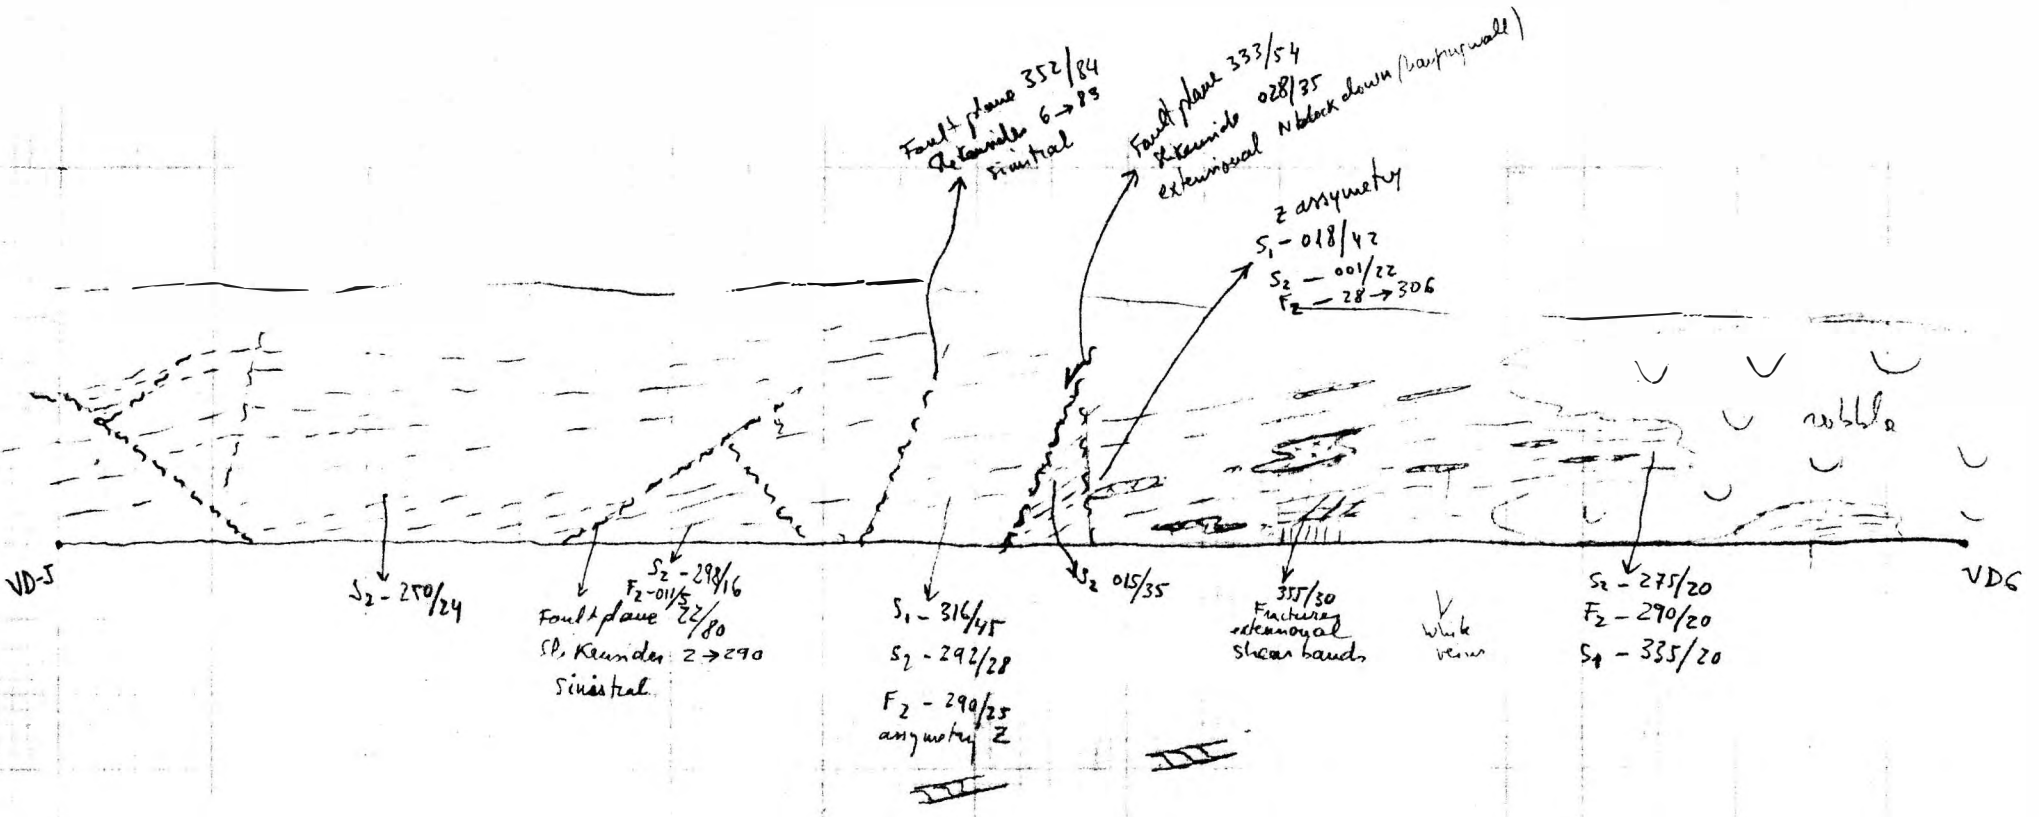 Fault plane 352/84
Slikensides 6→83
sinistral
Fault plane 333/54
Slikenside 028/35
extensional N block down (hangingwall)
Z assymetry
S1 - 018/42
S2 - 001/22
F2 - 28→306
rubble
VD-5
VD6
S2 - 250/24
S2 - 298/16
F2 - 011/5
Fault plane 22/80
Slikensides 2→290
sinistral
S1 - 316/45
S2 - 292/28
F2 - 290/25
assymetry Z
S2 015/35
355/30
Fractures
extensional
shear bands
white
veins
S2 - 275/20
F2 - 290/20
S1 - 335/20